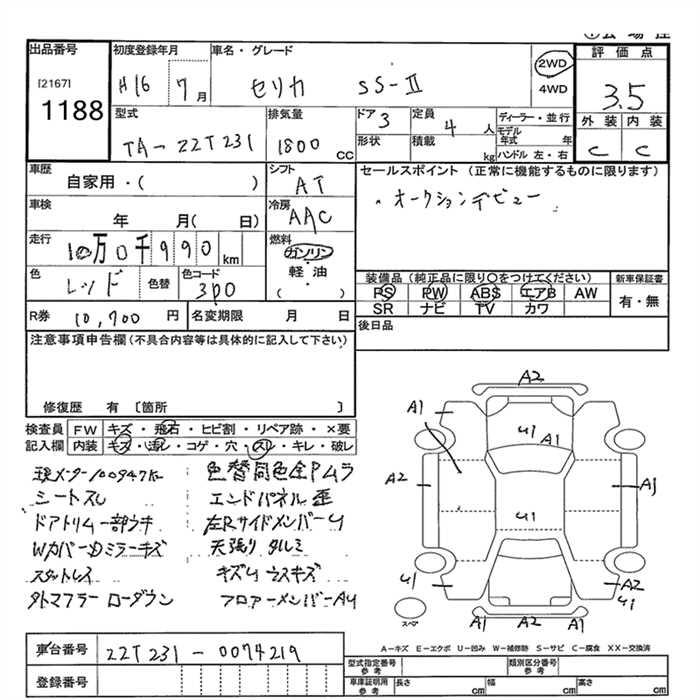 出品番号
[2167]
1188
初度登録年月
H16 7月
車名・グレード
セリカ SS-II
2WD
4WD
評価点
3.5
外装 内装
C C
型式
TA-ZZT231
排気量
1800 CC
ドア 3
形状
定員 4 人
積載 kg
ディーラー・並行
モデル年式 年
ハンドル 左・右
車歴
自家用・( )
シフト
AT
セールスポイント (正常に機能するものに限ります)
・オークションデビュー
車検
年 月( 日)
冷房
AAC
走行
10万0千990 km
燃料
ガソリン
軽油
( ・ )
色
レッド
色替
色コード
3P0
装備品 (純正品に限り〇をつけてください)
新車保証書
PS PW ABS エアB AW
有・無
SR ナビ TV カワ
R券 10,700 円
名変期限 月 日
後日品
注意事項申告欄(不具合内容等は具体的に記入して下さい)
修復歴 有 〔箇所 〕
検査員
記入欄
FW キズ・飛石・ヒビ割・リペア跡・×要
内装 キズ・汚レ・コゲ・穴・スレ・キレ・破レ
現メーター100947K
シートスレ
ドアトリム一部ウキ
WカバーDミラーキズ
スタットレス
タトマフラー ローダウン
色替同色全Pムラ
エンドパネル歪
左RサイドメンバーU
天張りタルミ
キズUウスキズ
フロアーメンバーAU
A2
A1
U1
A1
A2
A1
U1
U1
A2
U1
A1
A2
A1
スペア
A-キズ E-エクボ U-凹み W-補修跡 S-サビ C-腐食 XX-交換済
車台番号 ZZT231-0074219
登録番号
型式指定番号
参考
類別区分番号
参考
車庫証明用
参考
長さ cm
幅 cm
高さ cm